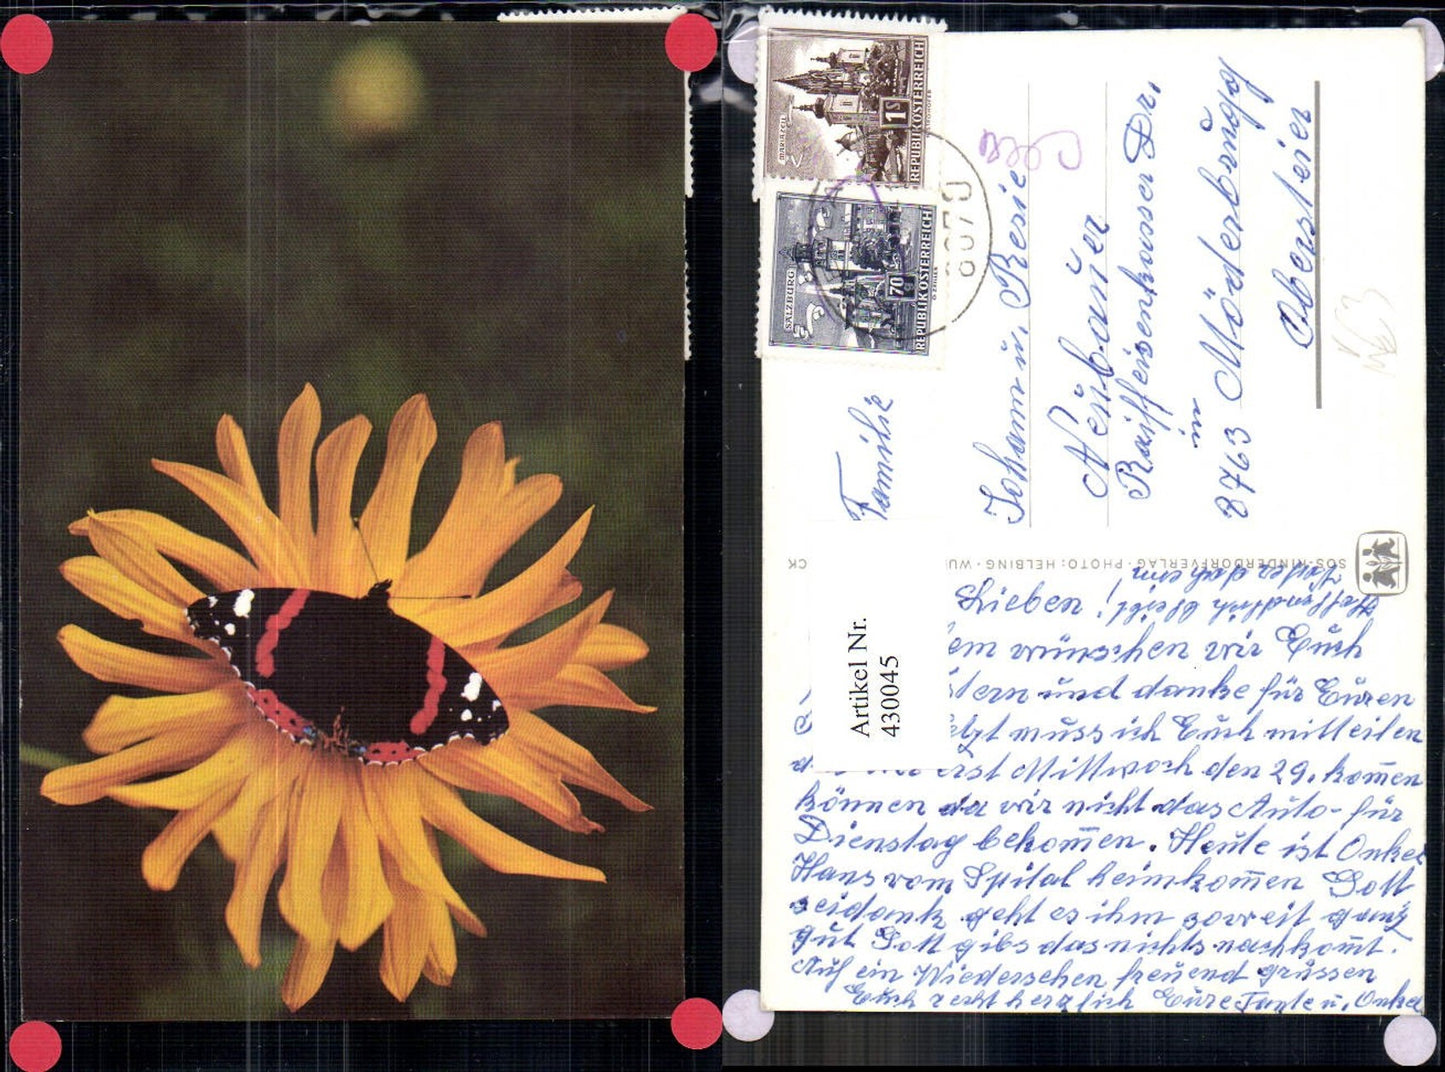 MARIAZELL
1S
REPUBLIK ÖSTERREICH
SALZBURG
70
REPUBLIK ÖSTERREICH
8070
Familie
Johann u. Resie
Neubauer
Raiffeisenkasser Dr.
in
8763 Möderbrugg
Obersteier
SOS-KINDERDORFVERLAG · PHOTO: HELBING · WU
CK
Artikel Nr.
430045
Lieben
wünschen wir Euch
und danke für Euren
muss ich Euch mitteilen
erst Mittwoch den 29. kommen
können da wir nicht das Auto für
Dienstag bekommen. Heute ist Onkel
Hans vom Spital heimkommen Gott
seidank geht es ihm soweit ganz
gut Gott gibs das nichts nachkommt.
Auf ein Wiedersehen freuend grüssen
Euch recht herzlich Eure Tante u. Onkel